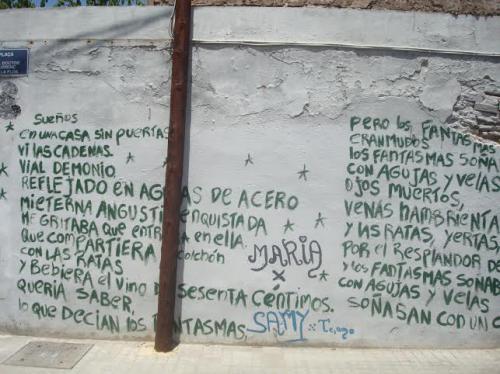 PLAÇA
DOCTOR
LA FLOR
SUEÑOS
EN UNA CASA SIN PUERTAS
VI LAS CADENAS.
VI AL DEMONIO
REFLEJADO EN AGUAS DE ACERO
MI ETERNA ANGUSTI ENQUISTADA
ME GRITABA QUE ENTR EN ELLA.
QUE COMPARTIERA COLCHÓN
CON LAS RATAS
Y BEBIERA EL VINO DE SESENTA CÉNTIMOS.
QUERÍA SABER,
LO QUE DECÍAN LOS FANTASMAS,
MARÍA
X
SAMY
PERO LOS FANTASMAS
ERAN MUDOS
LOS FANTASMAS SOÑA
CON AGUJAS Y VELAS
OJOS MUERTOS,
VENAS HAMBRIENTA
Y LAS RATAS, YERTAS
POR EL RESPLANDOR DE
Y LOS FANTASMAS SOÑAB
CON AGUJAS Y VELAS
SOÑABAN CON UN C